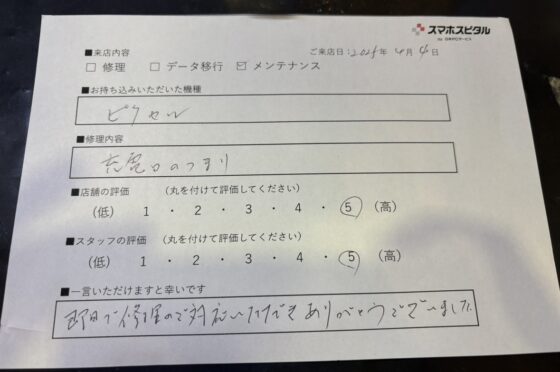 スマホスピタル
■来店内容
ご来店日：2025年 4月 4日
□ 修理 □ データ移行 ☑ メンテナンス
■お持ち込みいただいた機種
ピクセル
■修理内容
充電口のつまり
■店舗の評価 （丸を付けて評価してください）
（低） 1 ・ 2 ・ 3 ・ 4 ・ 5 （高）
■スタッフの評価 （丸を付けて評価してください）
（低） 1 ・ 2 ・ 3 ・ 4 ・ 5 （高）
■一言いただけますと幸いです
即日で修理のご対応いただきありがとうございました